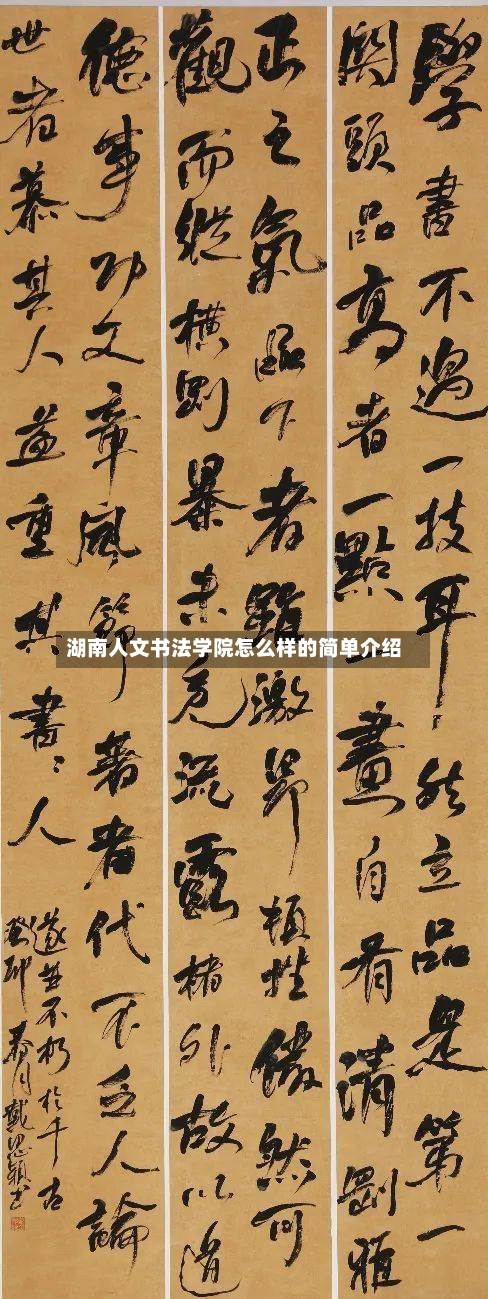 學書不過一技耳〻然立品是第一
關頭品高者一點一畫自有清剛雅
正之氣品下者雖激昂頓挫儼然可
觀而縱横剛暴未免流露楮外故以道
德事功文章風節著者代不乏人論
世者慕其人益重其書〻人
遂並不朽於千古
癸卯
書
湖南人文书法学院怎么样的简单介绍